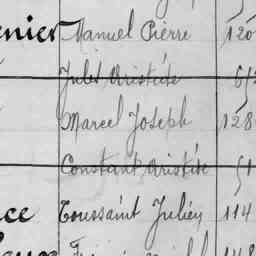 enier Manuel Pierre 120
Jules Aristide
Marcel Joseph 128
Constant Aristide 51
ce Toussaint Julien 114